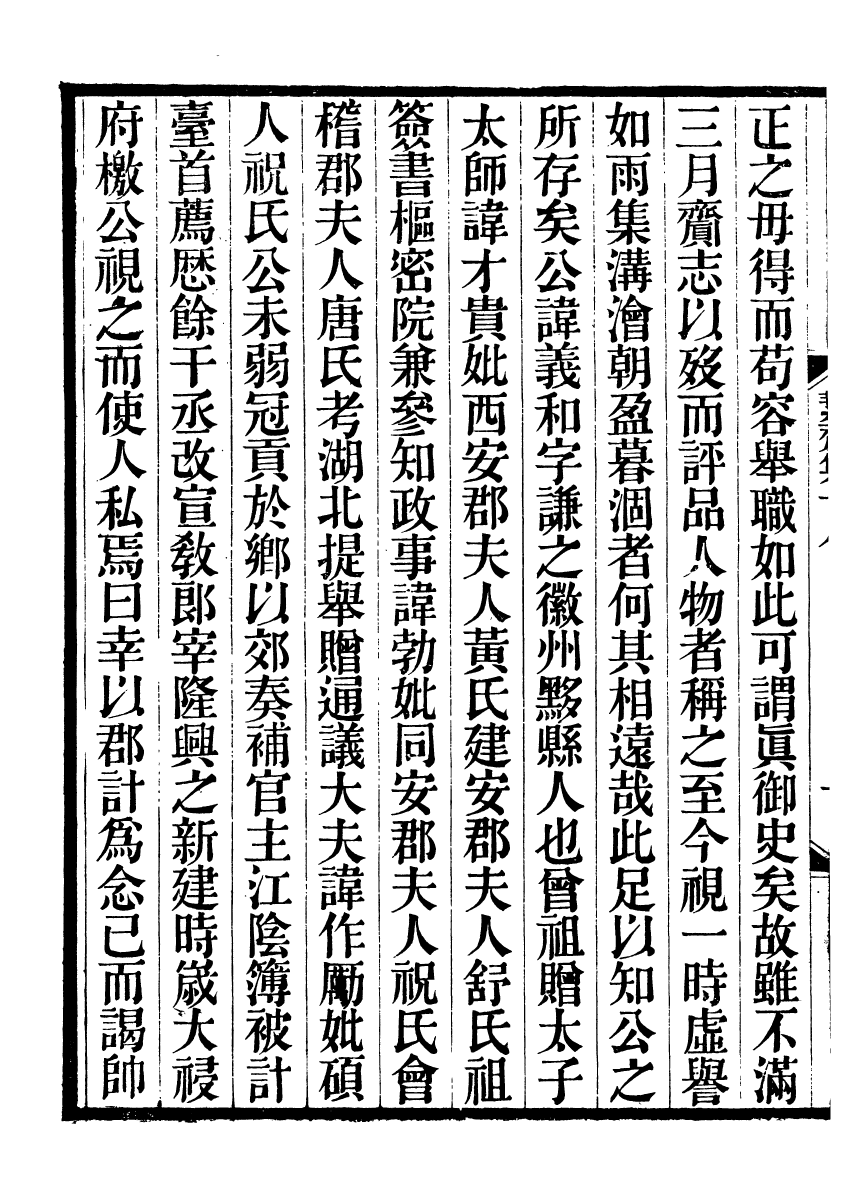 正之毋得而苟容舉職如此可謂眞御史矣故雖不滿
三月齎志以歿而評品人物者稱之至今視一時虛譽
如雨集溝澮朝盈暮涸者何其相遠哉此足以知公之
所存矣公諱義和字謙之徽州黟縣人也曾祖贈太子
太師諱才貴妣西安郡夫人黃氏建安郡夫人舒氏祖
簽書樞密院兼參知政事諱勃妣同安郡夫人祝氏會
稽郡夫人唐氏考湖北提舉贈通議大夫諱作勵妣碩
人祝氏公未弱冠貢於鄉以郊奏補官主江陰簿被計
臺首薦歷餘干丞改宣敎郎宰隆興之新建時歲大祲
府檄公視之而使人私焉曰幸以郡計爲念已而謁帥